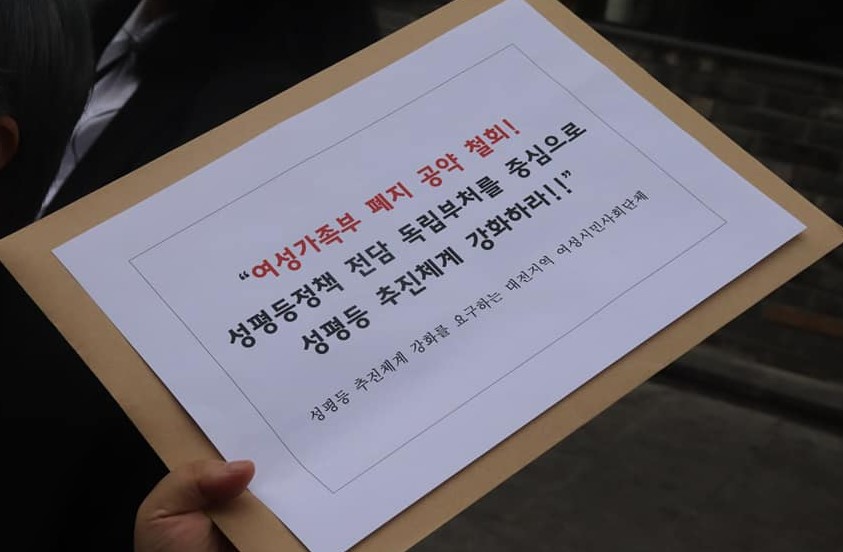 “여성가족부 폐지 공약 철회!
성평등정책 전담 독립부처를 중심으로
성평등 추진체계 강화하라!!”
성평등 추진체계 강화를 요구하는 대전지역 여성시민사회단체